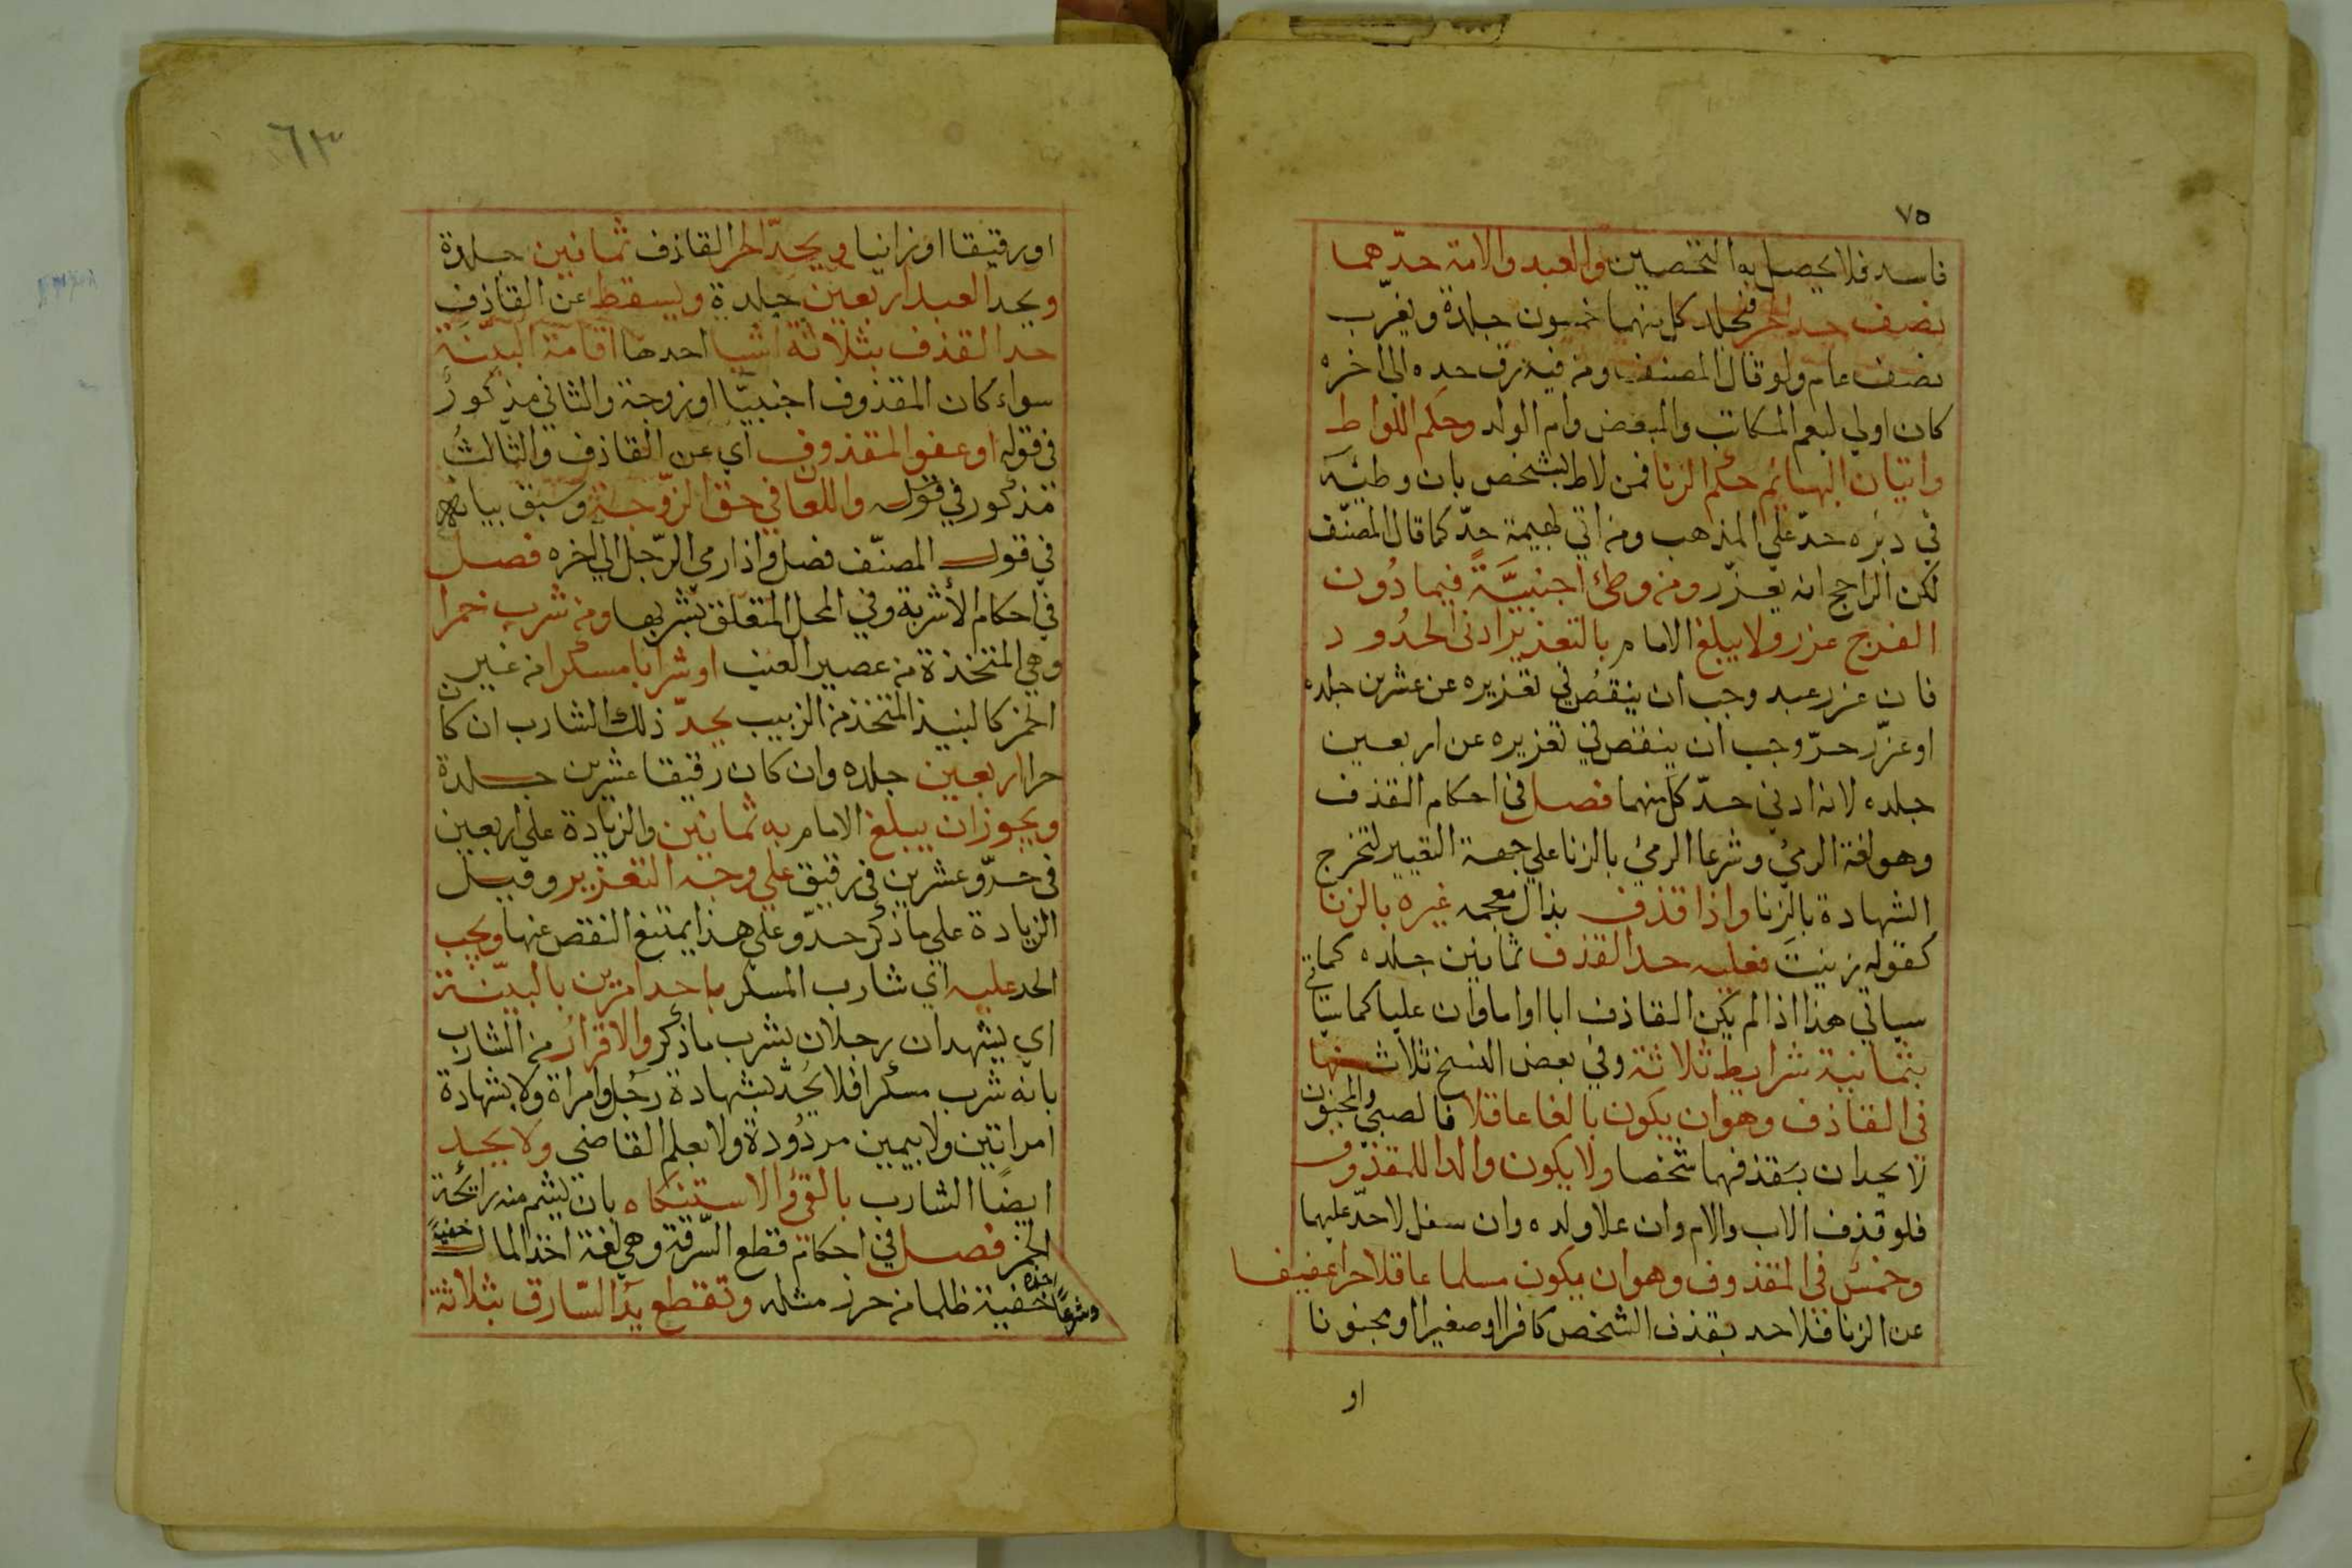 ٧٥
فاسد فلا يحصل به التحصين والعبد والامة حدّهما
نصف حد الحر فيجلد كل منهما خمسون جلدة ويغرّب
نصف عام ولو قال المصنف ومن فيه رق حده الي اخره
كان اولي ليعم المكاتب والمبعض وام الولد وحكم اللواط
واتيان البهائم حكم الزنا فمن لاط بشخص بان وطئه
في دبره حدّ علي المذهب ومن اتي بهيمة حدّ كما قال المصنّف
لكن الراجح انه يعزر ومن وطئ اجنبيَّةً فيما دُون
الفرج عزر ولا يبلغ الامام بالتعزير ادنى الحدُود
فان عزر عبد وجب ان ينقصُ في تعزيره عن عشرين جلده
او عزّر حدّ وجب ان ينقص في تعزيره عن اربعين
جلده لانه ادني حدّ كل منهما فصل في احكام القذف
وهو لغة الرميُ وشرعا الرميُ بالزنا علي جهة التعيير لتخرج
الشهادة بالزنا واذا قذف بذال معجمه غيره بالزنا
كقوله زينتَ فعليه حد القذف ثمانين جلده كما
سياتي هذا اذا لم يكن القاذف ابا او اما وان عليا كما سياتي
بثمانية شرايط ثلاثة وفي بعض النسخ ثلاث منها
في القاذف وهو ان يكون بالغا عاقلا فالصبيُ والمجنون
لا يحدان بقذفهما شخصا ولا يكون والدا للمقذوف
فلو قذف الاب والام وان علا ولده وان سفل لا حدّ عليهما
وخمسٌ في المقذوف وهو ان يكون مسلما عاقلا حرا عفيفا
عن الزنا فلا حد بقذف الشخص كافرا او صغيرا او مجنونا
او
٦٣
او رقيقا او زانيا ويحدّ الحر القاذف ثمانين جلدة
ويحد العبد اربعين جلدة ويسقط عن القاذف
حد القذف بثلاثة اشيا احدها اقامة البيّنة
سواء كان المقذوف اجنبيّا او زوجة والثاني مذكورٌ
في قوله او عفو المقذوف اي عن القاذف والثالثُ
مذكور في قوله واللعان في حق الزّوجة وسبق بيانه
في قول المصنّف فصل واذا رمي الرّجل الي اخره فصل
في احكام الأشربة وفي الحد المتعلق بشربها ومن شرب خمرا
وهي المتخذة من عصير العنب او شرابا مسكرا من غير
الخمر كالنبيذ المتخذ من الزبيب يحدّ ذلك الشارب ان كان
حرا اربعين جلده وان كان رقيقا عشرين جلدة
ويجوز ان يبلغ الامام به ثمانين والزيادة علي اربعين
في حدّ وعشرين في رقيق علي وجه التعزير وقيل
الزيادة علي ما ذكر حدّ وعلي هذا يمتنع النقص عنها ويجب
الحد عليه اي شارب المسكر باحد امرين بالبيّنة
اي يشهدان رجلان بشرب ما ذكر والاقرار من الشارب
بانه شرب مسكرا فلا يُحدّ بشهادة رجُل وامراة ولا بشهادة
امراتين ولا بيمين مردُودة ولا بعلم القاضي ولا يحد
ايضًا الشارب بالقئ والاستنكاه بان يشم منه رائحة
الخمر فصل في احكام قطع السّرقة وهي لغة اخذ المال خفيةً
وشرعا اخذه خفية ظلما من حرز مثله وتقطع يدُ السّارق بثلاثة